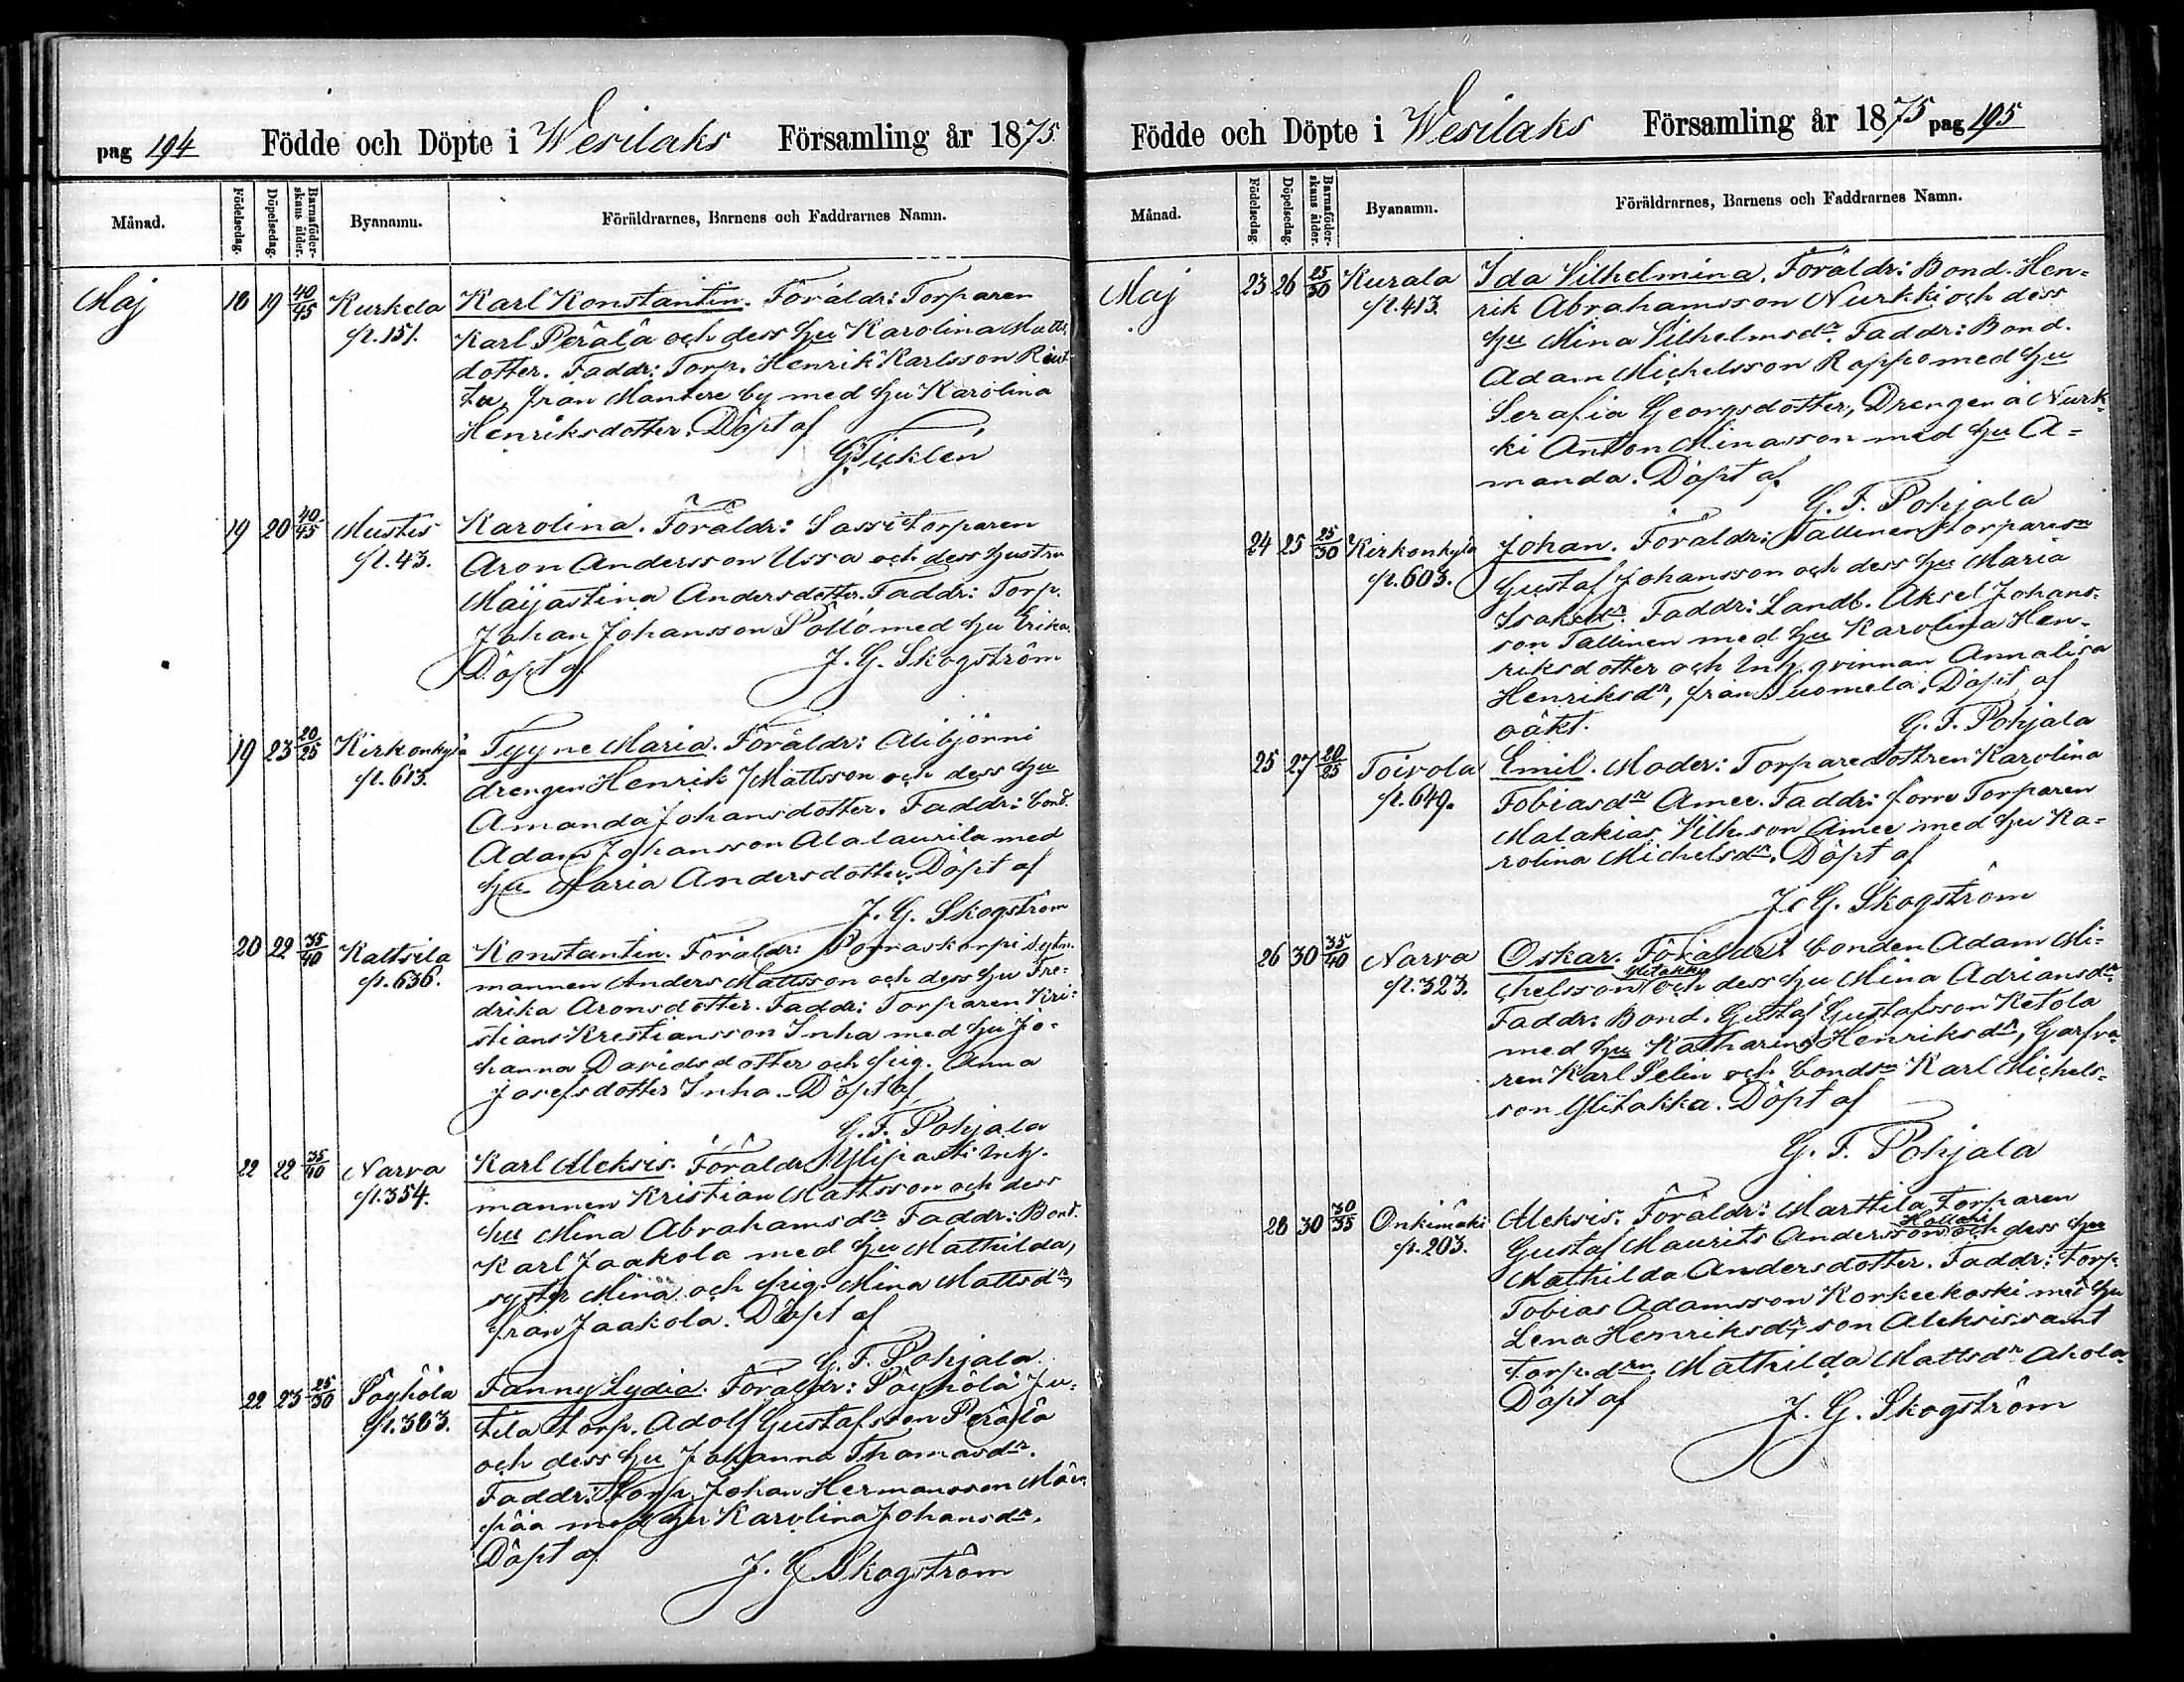 pag 194 Födde och Döpte i Wesilaks Församling år 1875.
Månad. Födelsedag. Döpelsedag. Barnaföderskans ålder. Byanamn. Föräldrarnes, Barnens och Faddrarnes Namn.
Maj 18 19 40/45 Kurkela Karl Konstantin. Föräldr: Torparen
p. 151. Karl Perälä och dess hu Karolina Matts
dotter. Faddr: Torp. Henrik Karlsson
från Mantere by med hu Karolina
Henriksdotter. Döpt af
19 20 40/45 Mustis Karolina. Föräldr: Sassi torparen
p. 43. Aron Andersson Ussa och dess hustru
Maijastina Andersdotter. Faddr: Torp.
Johan Johansson Pöllö med hu Erika.
Döpt af J. G. Skogström
19 23 20/25 Kirkonkylä Tyyne Maria. Föräldr: Alibjönni
p. 613. drengen Henrik Mattsson och dess hu
Amanda Johansdotter. Faddr: bond.
Adam Johansson Alalaurila med
hu Maria Andersdotter. Döpt af
J. G. Skogström
20 22 35/40 Kaltsila Konstantin. Föräldr: Porraskorpi sytn.
p. 636. mannen Anders Mattsson och dess hu Fre-
drika Aronsdotter. Faddr: Torparen Kri-
stians Krestiansson Inha med hu Jo-
hanna Davidsdotter och pig. Anna
Josefsdotter Inha. Döpt af
G. F. Pohjala
22 22 35/40 Narva Karl Aleksis. Föräldr: Ylipasti Inh.
p. 354. mannen Kristian Mattsson och dess
hu Mina Abrahamsdr. Faddr: Bond.
Karl Jaakola med hu Mathilda,
syster Mina och pig. Mina Mattsdr,
från Jaakola. Döpt af
G. F. Pohjala
22 23 25/30 Pöyhölä Fanny Lydia. Föräldr: Pöyhölä Ju-
p. 383. tila torp. Adolf Gustafsson Perälä
och dess hu Johanna Thomasdr.
Faddr: Torp. Johan Hermansson
pää med hu Karolina Johansdr.
Döpt af
J. G. Skogström
Födde och Döpte i Wesilaks Församling år 1875 pag 195
Månad. Födelsedag. Döpelsedag. Barnaföderskans ålder. Byanamn. Föräldrarnes, Barnens och Faddrarnes Namn.
Maj 23 26 25/30 Kurala Ida Vilhelmina. Föräldr: Bond. Hen-
p. 413. rik Abrahamsson Nurkki och dess
hu Mina Vilhelmsdr. Faddr: Bond.
Adam Michelsson Rappo med hu
Serafia Georgsdotter, Drengen å Nurk-
ki Anton Minasson med hu A-
manda. Döpt af
G. F. Pohjala
24 25 25/30 Kirkonkylä Johan. Föräldr: Tallinen torparesn
p. 603. Gustaf Johansson och dess hu Maria
Isaksdr. Faddr: Landb. Aksel Johans-
son Tallinen med hu Karolina Hen-
riksdotter och Inh. qvinnan Annalisa
Henriksdr, från Suomela. Döpt af
oäkt. G. F. Pohjala
25 27 20/25 Toivola Emil. Moder: Torparedottren Karolina
p. 649. Tobiasdr Amee. Faddr: forne Torparen
Malakias Vilh.son Amee med hu Ka-
rolina Michelsdr. Döpt af
J. G. Skogström
26 30 35/40 Narva Oskar. Föräldr: bonden Adam Mi-
p. 323. chelsson Ylitakka och dess hu Mina Adriansdr
Faddr: Bond. Gustaf Gustafsson Ketola
med hu Katharina Henriksdr, Garfva-
ren Karl Selin och bondsn Karl Michels-
son Ylitakka. Döpt af
G. F. Pohjala
28 30 30/35 Onkimäki Aleksis. Föräldr: Marttila torparen
p. 203. Gustaf Maurits Andersson och dess hu
Mathilda Andersdotter. Faddr: Torp.
Tobias Adamsson Korkeekoski med hu
Lena Henriksdr, son Aleksis samt
torp.drn Mathilda Mattsdr Ahola.
Döpt af J. G. Skogström